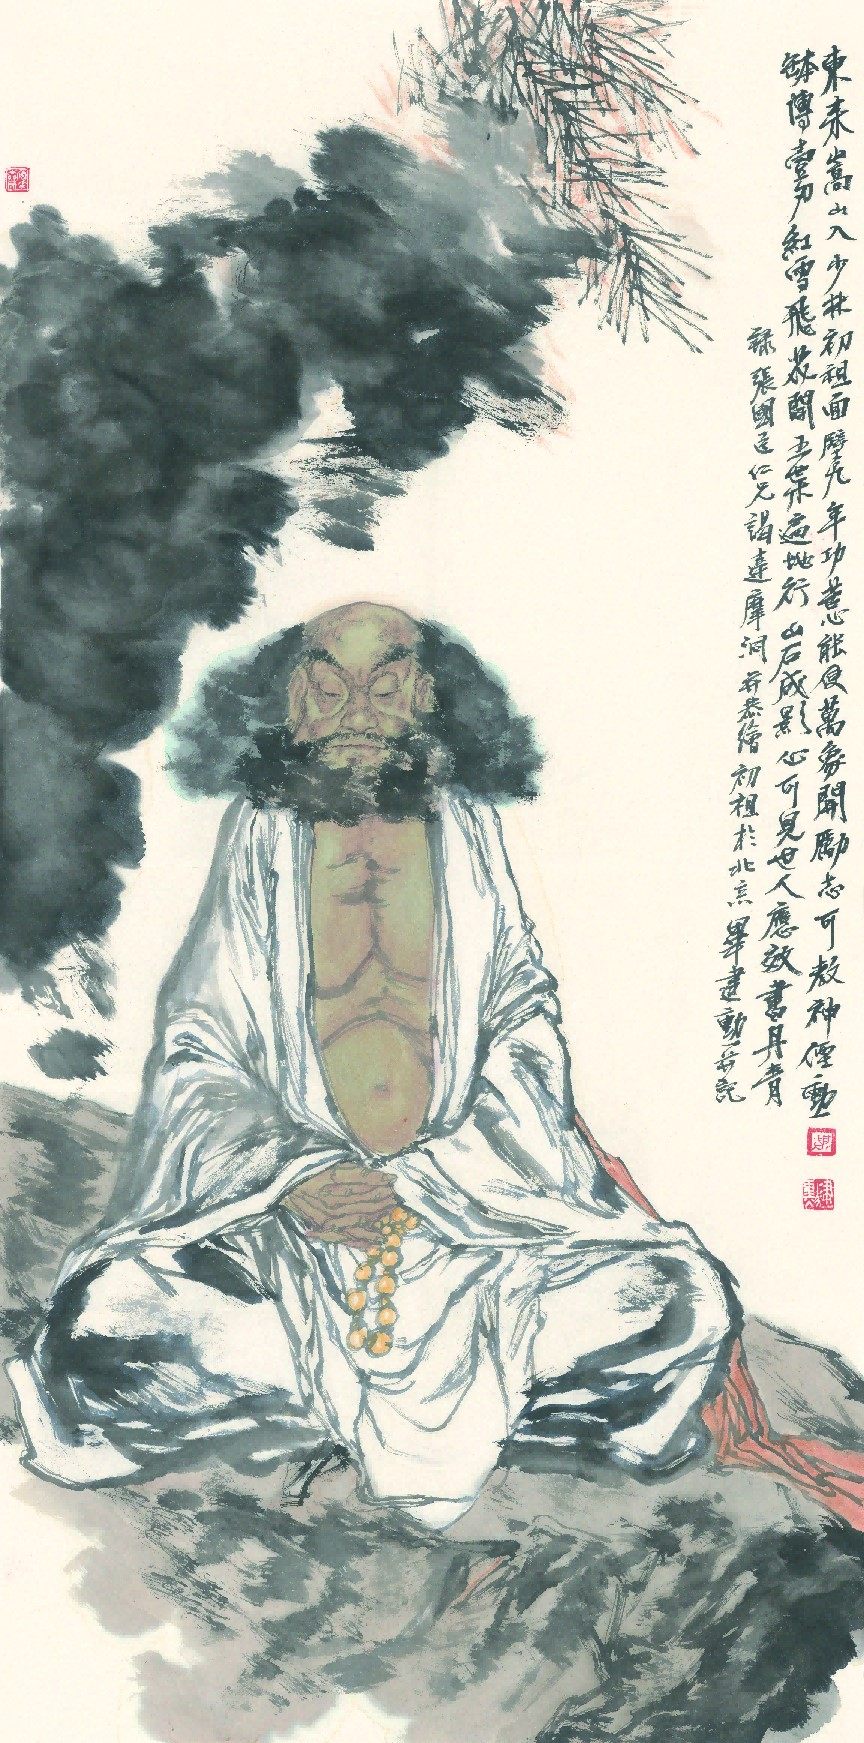 東来嵩山入少林初祖面壁九年功苦心能使萬象開勵志可教神僊動
缽傳壹刀紅雪飛花開五葉遍地行山石成影心可見世人應效書丹青
録張國臣仁兄謁達摩洞并恭繪初祖於北京畢建勳并記